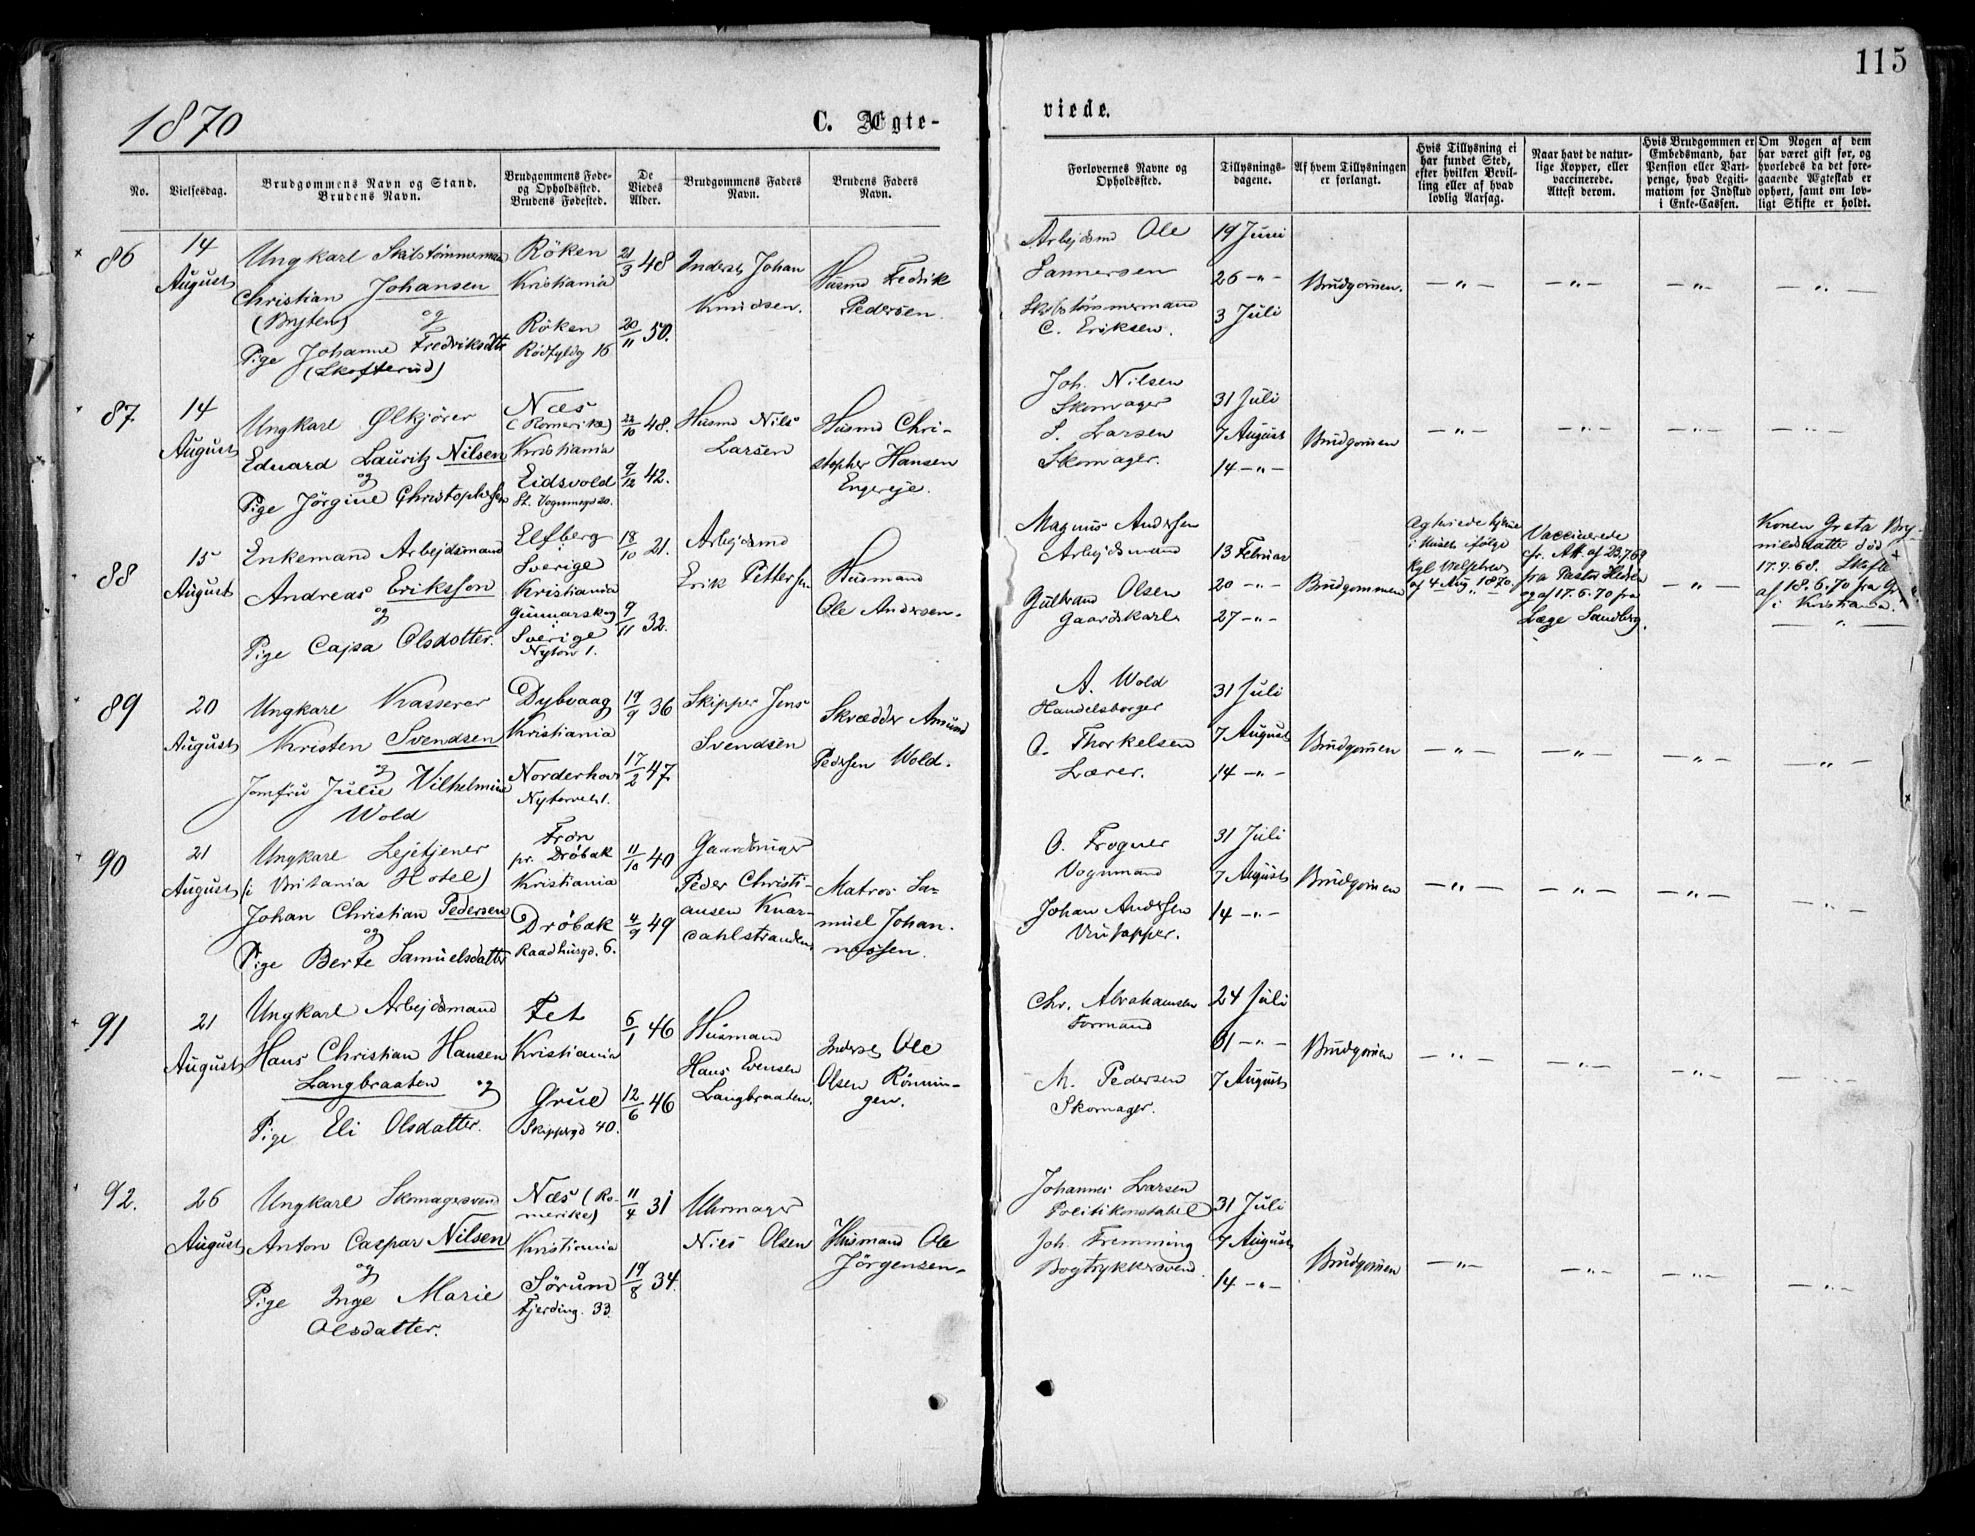 115
1870
C. Ægte-
viede.
No.
Vielsesdag.
Brudgommens Navn og Stand.
Brudens Navn.
Brudgommens Føde-
og Opholdssted.
Brudens Fødested.
De
Viedes
Alder.
Brudgommens Faders
Navn.
Brudens Faders
Navn.
Forlovernes Navne og
Opholdssted.
Tillysnings-
dagene.
Af hvem Tillysningen
er forlangt.
Hvis Tillysning ei
har fundet Sted,
efter hvilken Bevil-
ling eller af hvad
lovlig Aarsag.
Naar havt de natur-
lige Kopper, eller
vaccinerede.
Attest derom.
Hvis Brudgommen er
Embedsmand, har
Pension eller Vart-
penge, hvad Legiti-
mation for Indskud
i Enke-Cassen.
Om Nogen af dem
har været gift før, og
hvorledes da det fore-
gaaende Ægteskab er
ophørt, samt om lov-
ligt Skifte er holdt.
86
14
August
Ungkarl Skibstømmermand
Christian Johansen
(Bryten) og
Pige Johanne Fredriksdtr
(Skofterud)
Röken
Kristiania
Röken
Rödfyldg 16
21/3 48
20/11 50.
Inderst Johan
Knudsen.
Husmd Fedrik
Pedersen.
Arbejdsmd Ole
Sannersen
Skibstömmermand
C. Eriksen.
19 Juni
26 -"-
3 Juli
Brudgomen.
-"- -"- -"- -"-
87.
14
August
Ungkarl Ølkjörer
Eduard Lauritz Nilsen
og
Pige Jörgine Christophersen
Næs
(Romerike)
Kristiania
Eidsvold
St. Vognmagd 20.
22/10 48.
9/12 42.
Husmd Nils
Larsen
Husmd Chri-
stopher Hansen
Engereje.
Joh. Nilsen
Skomager
S. Larsen
Skomager.
31 Juli
7 August
14 -"-
Brudgomen
-"- -"- -"- -"-
88
15
August
Enkemand Arbejdsmand
Andreas Eriksson
og
Pige Cajsa Olsdotter.
Elfberg
Sverige
Kristiania
Gunnarskog
Sverige
Nytorv 1.
18/10 21.
9/11 32.
Arbejdsmd
Erik Pettersen
Husmand
Ole Andersen.
Magnus Andersen
Arbejdsmand
Gulbrand Olsen
Gaardskarl
13 Februar
20 -"-
27 -"-
Brudgommen
Ægteviede hjeme
i Huset ifølge
Kgl Vielsebrev
af 4 Aug. 1870.
Vaccinerede
cfr. Att. af 23.7.69
fra Pastor Heden
og af 17.6.70 fra
Læge Sandberg.
-"-
Konen Greta Bry-
nildsdatter død
17.9.68. Skifte
af 18.6.70 fra
i Kristiania.
-"-
89
20
August
Ungkarl Kasserer
Kristen Svendsen
og
Jomfru Julie Vilhelmine
Wold
Dybvaag
Kristiania
Norderhov
Nytorvet 1.
19/9 36
17/2 47.
Skipper Jens
Svendsen
Skrædder Amund
Pedersen Wold.
A. Wold
Handelsborger
O. Thorkelsen
Lærer.
31 Juli
7 August
14 -"-
Brudgomen
-"- -"- -"- -"-
90
21
August
Ungkarl Lejetjener
(i Britania Hotel)
Johan Christian Pedersen
og
Pige Berte Samuelsdatter
Frön
pr. Dröbak
Kristiania
Dröbak
Raadhusgd. 6.
11/10 40
4/9 49
Gaardbruger
Peder Christi-
ansen Knar-
dahlstranden
Matros Sa-
muel Johan-
nessen.
O. Frogner
Vognmand
Johan Andersen
Vintapper.
31 Juli
7 August
14 -"-
Brudgomen
-"- -"- -"- -"-
91
21
August
Ungkarl Arbejdsmand
Hans Christian Hansen
Langbraaten og
Pige Eli Olsdatter.
Fet
Kristiania
Grue
Skippergd 40.
6/1 46
12/6 46
Husmand
Hans Evensen
Langbraaten.
Inderst Ole
Olsen Rönnin-
gen.
Chr. Abrahamsen
Formand
M. Pedersen
Skomager.
24 Juli
31 -"-
7 August
Brudgomen
-"- -"- -"- -"-
92.
26
August
Ungkarl Skomagersvend
Anton Caspar Nilsen
og
Pige Inge Marie
Olsdatter.
Næs (Ro-
merike)
Kristiania
Sörum
Fjerding. 33.
11/4 31
19/8 34.
Uhrmager
Nils Olsen
Husmand Ole
Jörgensen.
Johannes Larsen
Politikonstabel
Joh. Fremming
Bogtrykkersvend.
31 Juli
7 August
14 -"-
Brudgomen
-"- -"- -"- -"-